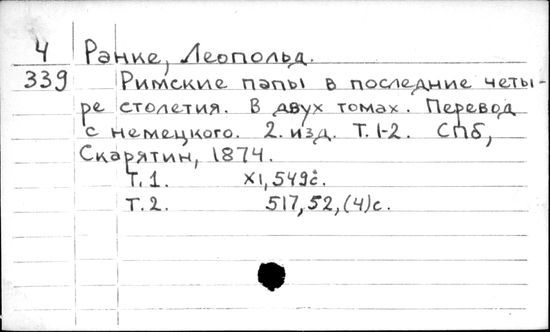 4 Ранке, Леопольд.
339 Римские папы в последние четы-
ре столетия. В двух томах. Перевод
с немецкого. 2. изд. Т.1-2. СПб,
Скарятин, 1874.
Т.1. XI, 549 с.
Т.2. 517, 52, (4) с.